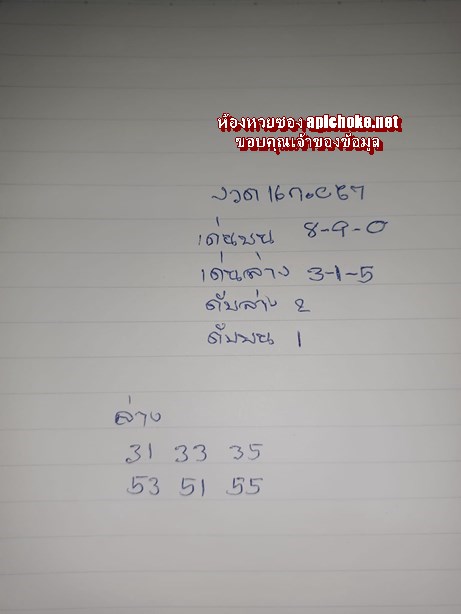 ห้องหวยซอง apichoke.net
ขอบคุณเจ้าของข้อมูล
งวด 16
เด่นบน 8-9-0
เด่นล่าง 3-1-5
ดับล่าง 2
ดับบน 1
ล่าง
31 33 35
53 51 55